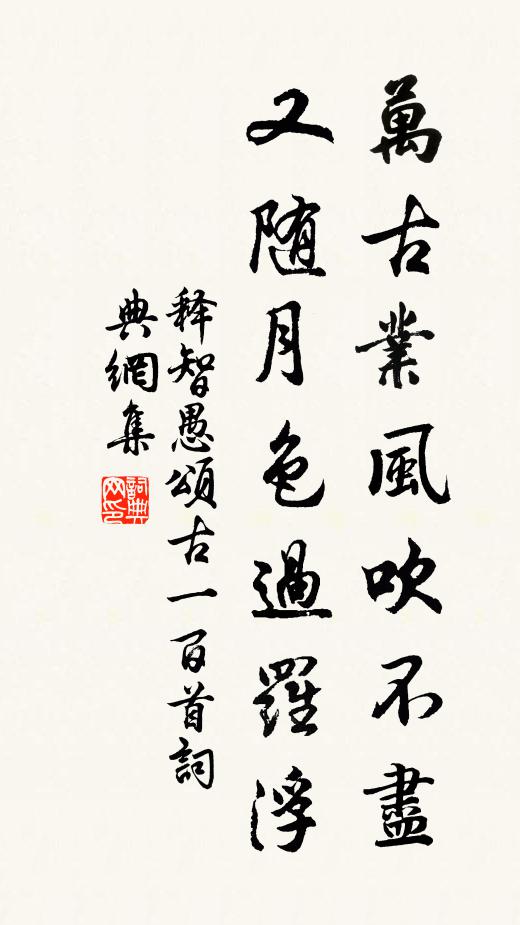 萬古業風吹不盡
又随月色過羅浮
释智愚頌古一百首詞
典網集
詞典网印